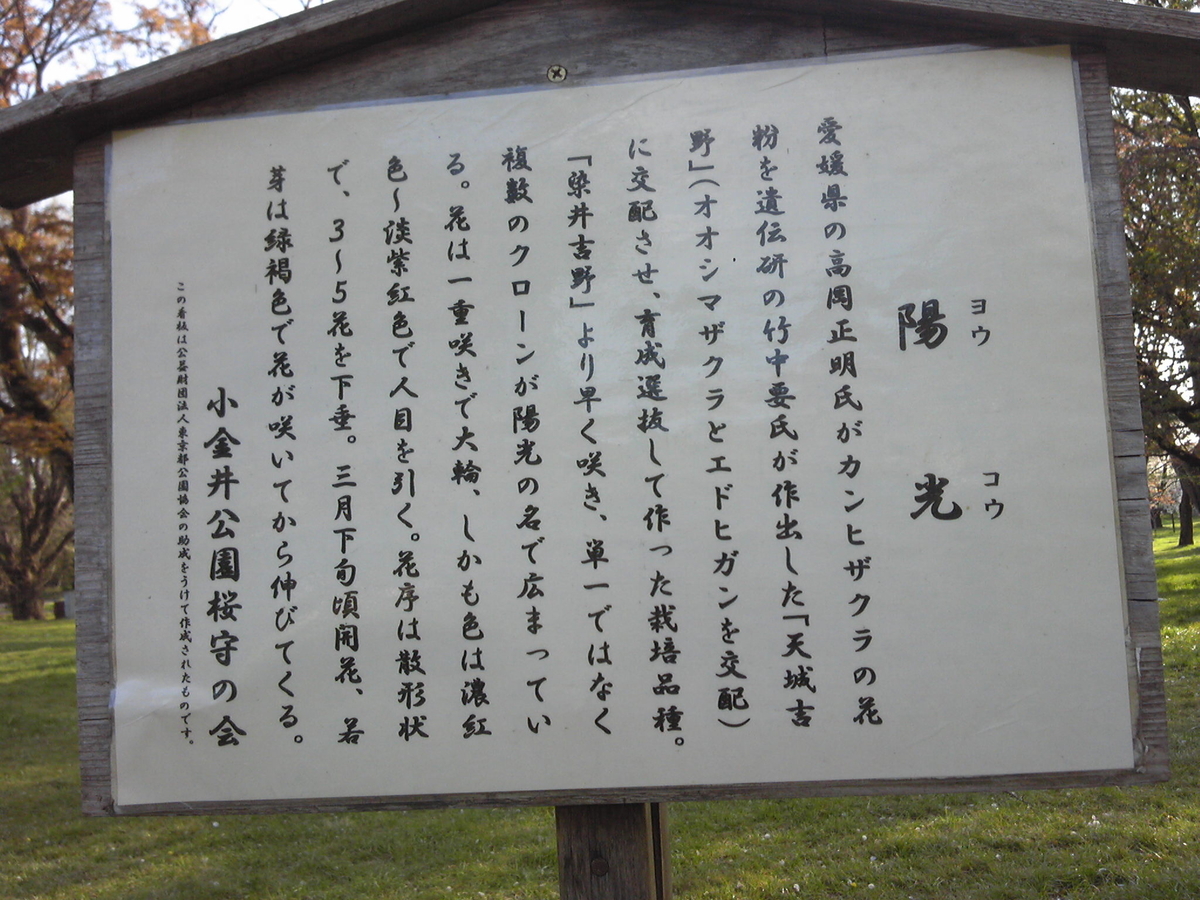 陽光
ヨウ コウ
愛媛県の高岡正明氏がカンヒザクラの花
粉を遺伝研の竹中要氏が作出した「天城吉
野」(オオシマザクラとエドヒガンを交配)
に交配させ、育成選抜して作った栽培品種。
「染井吉野」より早く咲き、単一ではなく
複数のクローンが陽光の名で広まってい
る。花は一重咲きで大輪、しかも色は濃紅
色〜淡紫紅色で人目を引く。花序は散形状
で、3〜5花を下垂。三月下旬頃開花、若
芽は緑褐色で花が咲いてから伸びてくる。
小金井公園桜守の会
この看板は公益財団法人東京都公園協会の助成をうけて作成されたものです。